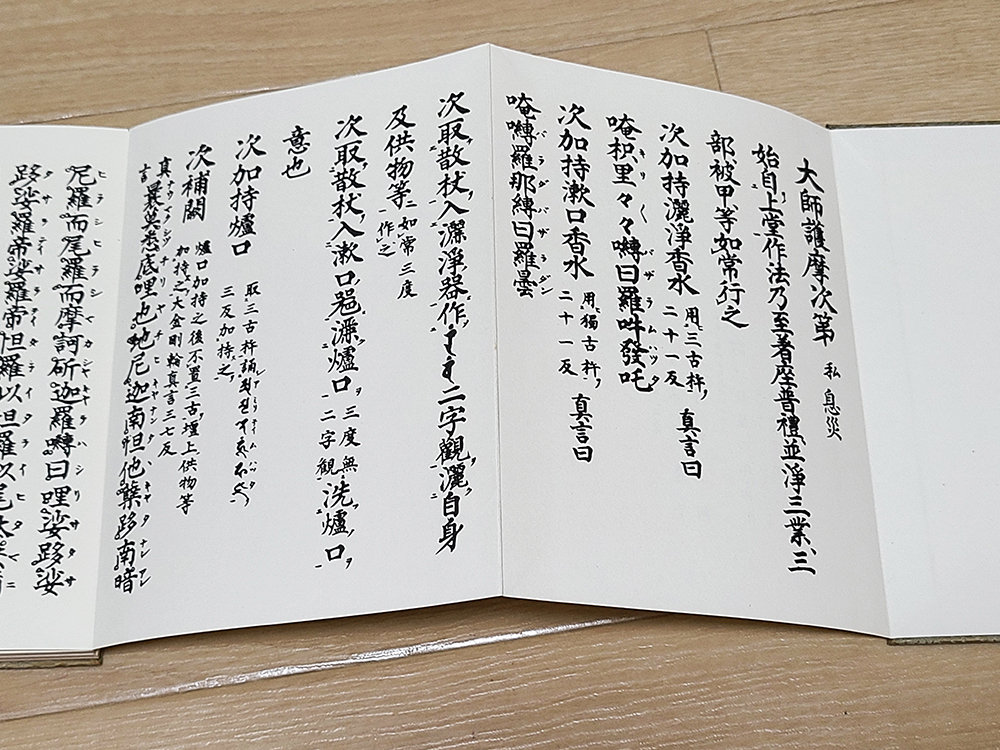 大師護摩次第 私 息災
始自上堂作法乃至著座普禮並淨三業三
部被甲等如常行之
次加持灑淨香水 用三古杵 二十一反 真言曰
唵枳里々々嚩曰羅吽發吒
キリ〱バザラウムハッタ
次加持漱口香水 用獨古杵 二十一反 真言曰
唵嚩羅那嚩曰羅曇
バラダバザラダン
次取散杖入灑淨器作 二字觀灑自身
及供物等 如常三度
作之
次取散杖入漱口器灑爐口 三度無
二字觀 洗爐口
意也
次加持爐口 取三古杵誦
三反加持之
次補闕 爐口加持之後不置三古壇上供物等
加持之大金剛輪真言三七反
真言 曩莫悉底哩也地尼迦南怛他櫱路南暗
尾羅而尾羅而摩訶斫迦羅嚩曰哩娑路娑
路娑羅帝娑羅帝怛羅以怛羅以尾